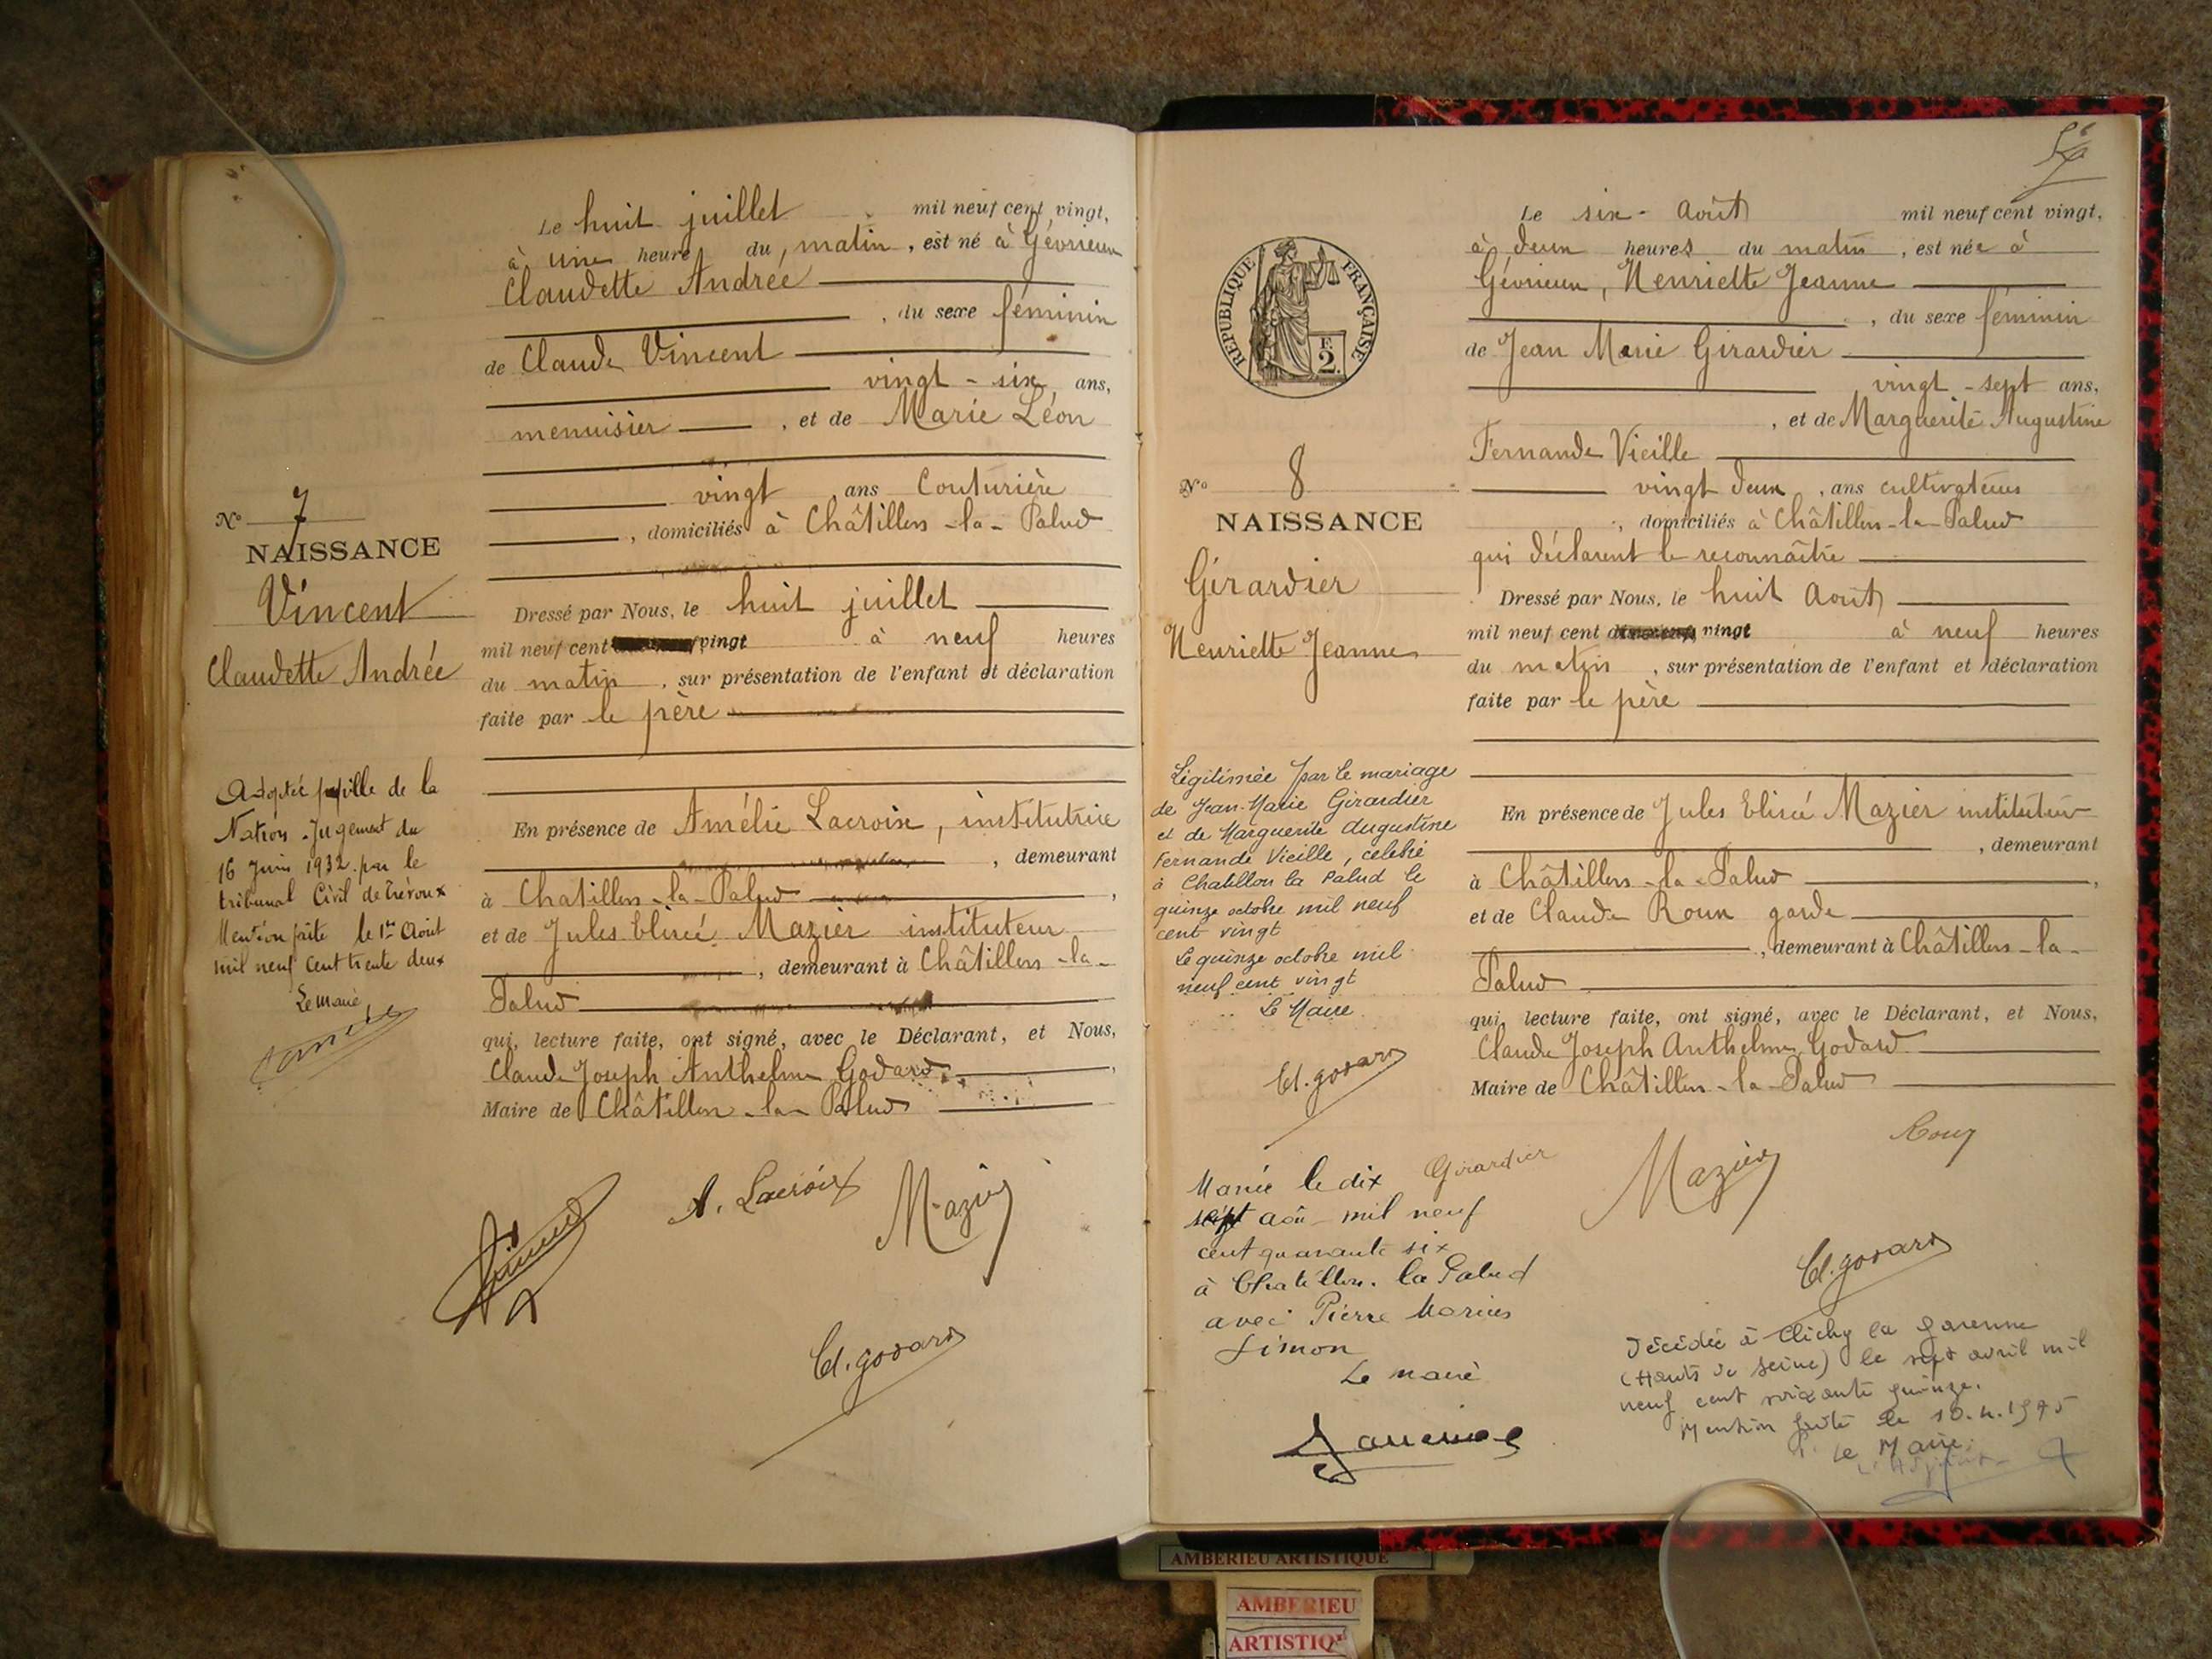 Le huit juillet mil neuf cent vingt,
à une heure du matin, est né à Gévrieux
Claudette Andrée
, du sexe féminin
de Claude Vincent
vingt-six ans,
menuisier, et de Marie Léon
vingt ans Couturière
, domiciliés à Châtillon-la-Palud
No 7
NAISSANCE
Vincent
Claudette Andrée
Dressé par Nous, le huit juillet
mil neuf cent vingt à neuf heures
du matin, sur présentation de l'enfant et déclaration
faite par le père
Adoptée pupille de la
Nation. Jugement du
16 Juin 1932 par le
tribunal Civil de Trévoux
Mention faite le 1er Août
mil neuf cent trente deux
Le maire
En présence de Amélie Lacroix, institutrice
, demeurant
à Chatillon-la-Palud,
et de Jules Elisée Mazier instituteur
, demeurant à Châtillon-la-
Palud
qui, lecture faite, ont signé, avec le Déclarant, et Nous,
Claude Joseph Anthelme Godard,
Maire de Châtillon-la-Palud
A. Lacroix
Mazier
Cl. godard
Le six Août mil neuf cent vingt,
à deux heures du matin, est née à
Gévrieux, Henriette Jeanne
, du sexe féminin
de Jean Marie Girardier
vingt-sept ans,
, et de Marguerite Augustine
Fernande Vieille
vingt deux, ans cultivateurs
, domiciliés à Châtillon-la-Palud
qui déclarent le reconnaître
REPUBLIQUE FRANÇAISE
2
No 8
NAISSANCE
Girardier
Henriette Jeanne
Dressé par Nous, le huit Août
mil neuf cent vingt à neuf heures
du matin, sur présentation de l'enfant et déclaration
faite par le père
Légitimée par le mariage
de Jean-Marie Girardier
et de Marguerite Augustine
Fernande Vieille, célébré
à Chatillon la Palud le
quinze octobre mil neuf
cent vingt
Le quinze octobre mil
neuf cent vingt
Le Maire
Cl. godard
En présence de Jules Elisée Mazier instituteur
, demeurant
à Châtillon-la-Palud,
et de Claude Roux garde
, demeurant à Châtillon-la-
Palud
qui, lecture faite, ont signé, avec le Déclarant, et Nous,
Claude Joseph Anthelme Godard
Maire de Châtillon-la-Palud
Girardier
Mazier
Roux
Cl. godard
Mariée le dix
sept août mil neuf
cent quarante six
à Chatillon. la Palud
avec Pierre Marius
Simon
Le maire
Décédée à Clichy la Garenne
(Hauts de Seine) le sept avril mil
neuf cent soixante quinze.
Mention faite le 10.4.1975
Le Maire
AMBERIEU ARTISTIQUE
AMBERIEU
ARTISTIQ